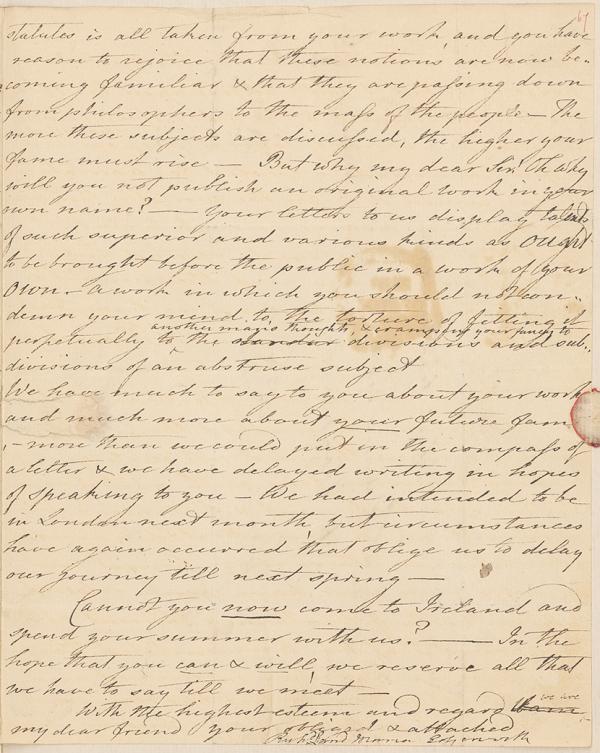 67
statutes is all taken from your work and you have
reason to rejoice that these notions are now be-
coming familiar & that they are passing down
from philosophers to the mass of the people — The
more these subjects are discussed, the higher your
fame must rise — But why my dear Sir! Oh why
will you not publish an original work in your
own name? — Your letters to us display talents
of such superior and various kinds as ought
to be brought before the public in a work of your
own — a work in which you should not con-
demn your mind to the torture of fitting it
another man's thoughts, & cramping your fancy to
perpetually to the divisions and sub-
divisions of an abstruse subject
We have much to say to you about your work
and much more about your future fam
— more than we could put in the compass of
a letter & we have delayed writing in hopes
of speaking to you — We had intended to be
in London next month, but circumstances
have again occurred that oblige us to delay
our journey till next spring —
Cannot you now come to Ireland and
spend your summer with us? — In the
hope that you can & will, we reserve all that
we have to say till we meet —
we are
With the highest esteem and regard I am
my dear friend your obliged & attached
Rich Lovd Maria Edgeworth